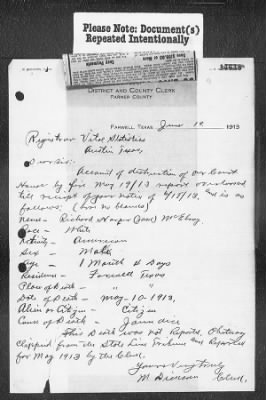 Please Note: Document(s)
Repeated Intentionally
DISTRICT AND COUNTY CLERK
PARMER COUNTY
FARWELL, TEXAS June 10 1913
Registrar Vital Statistics
Austin Texas,
Dear Sir:
Account of destruction of our Court
House by fire May 19/13 report overlooked
till receipt of your notice of is as
follows: (have no blanks)
Name - Richard Harper McElroy
Race - White
Nativity - American
Sex - Male
Age - 1 Month 4 Days
Residence - Farwell Texas
Place of Death - " "
Date of Death - May-10-1913,
Alien or Citizen - Citizen
Cause of Death - Jaundice
This Death was not Reported, Obituary
Clipped from the State Line Tribune and Reported
for May 1913 by the Clerk.
Yours Very truly
Clerk.